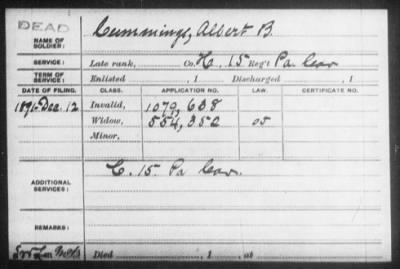 DEAD
NAME OF SOLDIER: Cummings, Albert B.
SERVICE: Late rank, Co. H. 15 Reg't Pa. Cav
TERM OF SERVICE: Enlisted , 1 Discharged , 1
DATE OF FILING. CLASS. APPLICATION NO. LAW. CERTIFICATE NO.
1891-Dec. 12 Invalid, 1079,638
Widow, 554,352 05
Minor,
ADDITIONAL SERVICES: H. 15. Pa Cav.
REMARKS:
Died , 1 , at